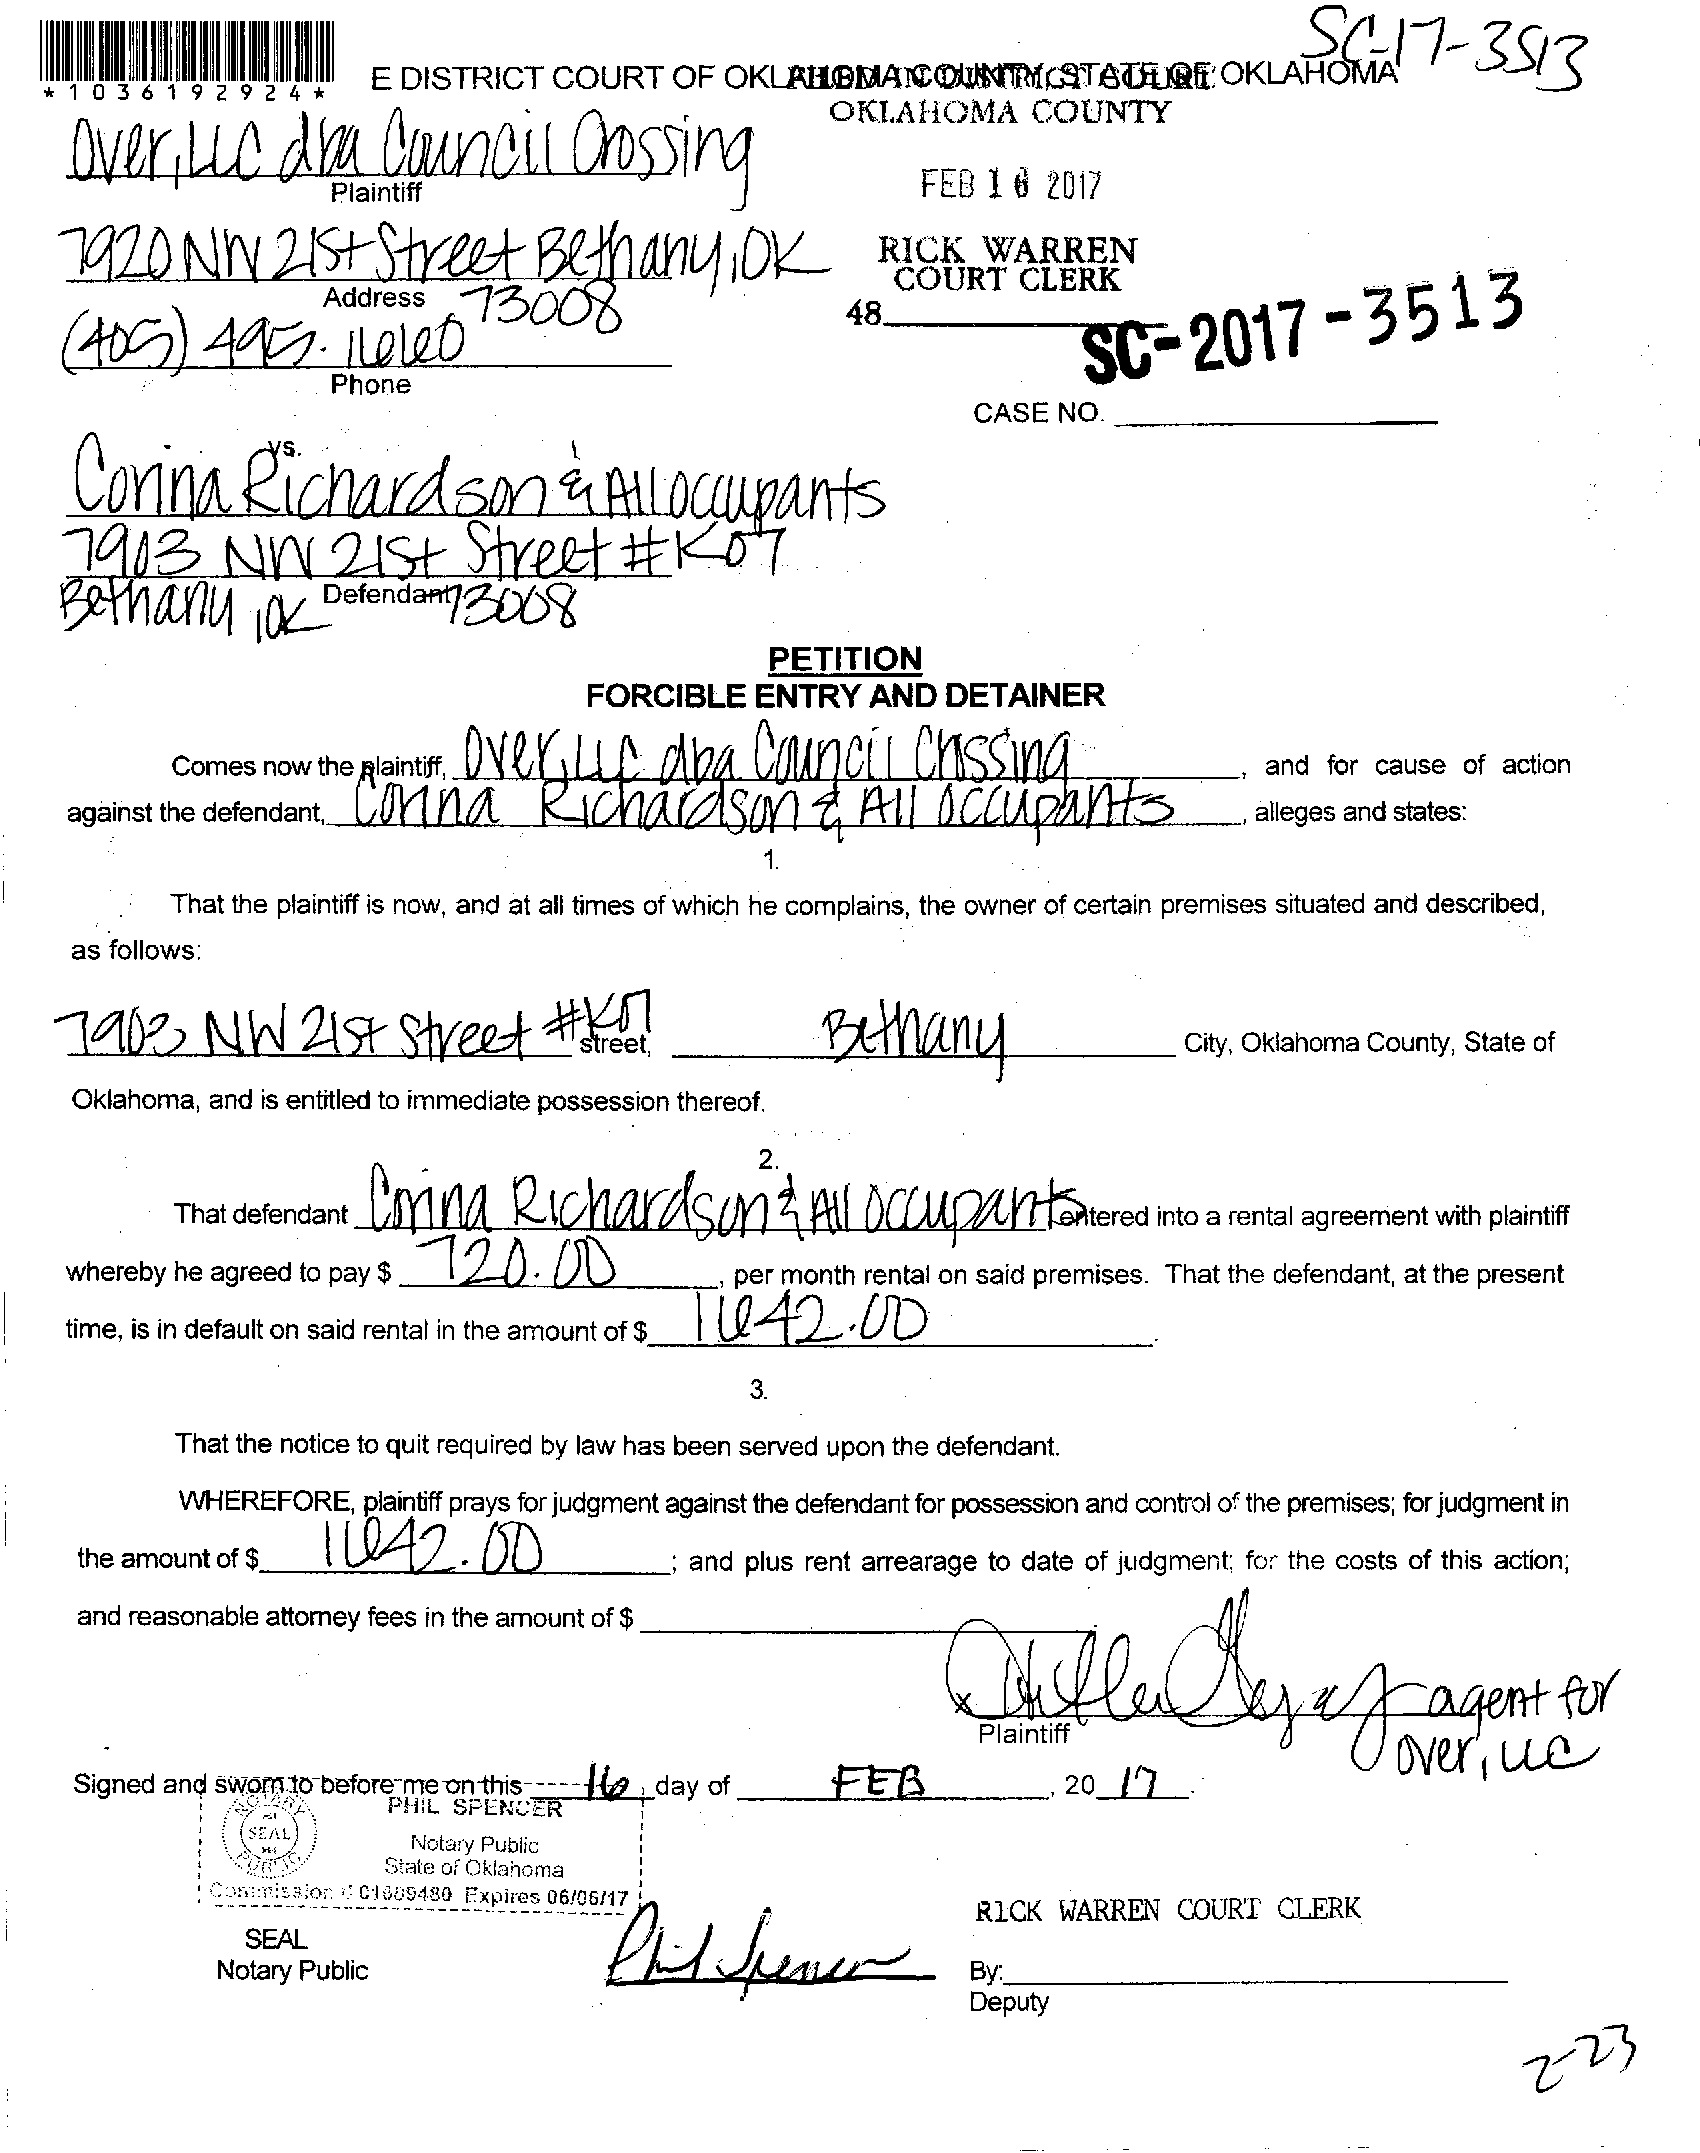 SC-17-3513
*1036192924*
E DISTRICT COURT OF OKLAHOMA COUNTY, STATE OF OKLAHOMA
FILED IN DISTRICT COURT
OKLAHOMA COUNTY
Over, LLC dba Council Crossing
Plaintiff
FEB 16 2017
7920 NW 21st Street Bethany, OK
Address 73008
RICK WARREN
COURT CLERK
48
(405) 495-1660
Phone
SC-2017-3513
CASE NO.
vs.
Corina Richardson & All occupants
7903 NW 21st Street #K07
Bethany, OK Defendant 73008
PETITION
FORCIBLE ENTRY AND DETAINER
Comes now the plaintiff, Over, LLC dba Council Crossing, and for cause of action
against the defendant, Corina Richardson & All occupants, alleges and states:
1.
That the plaintiff is now, and at all times of which he complains, the owner of certain premises situated and described,
as follows:
7903 NW 21st Street #K07 street, Bethany City, Oklahoma County, State of
Oklahoma, and is entitled to immediate possession thereof.
2.
That defendant Corina Richardson & All occupants entered into a rental agreement with plaintiff
whereby he agreed to pay $ 720.00, per month rental on said premises. That the defendant, at the present
time, is in default on said rental in the amount of $ 1642.00.
3.
That the notice to quit required by law has been served upon the defendant.
WHEREFORE, plaintiff prays for judgment against the defendant for possession and control of the premises; for judgment in
the amount of $ 1642.00; and plus rent arrearage to date of judgment; for the costs of this action;
and reasonable attorney fees in the amount of $
x agent for
Plaintiff Over, LLC
Signed and sworn to before me on this 16, day of FEB, 20 17.
NOTARY
SEAL
PUBLIC
PHIL SPENCER
Notary Public
State of Oklahoma
Commission # C1609480 Expires 06/06/17
SEAL
Notary Public
Phil Spencer
RICK WARREN COURT CLERK
By:
Deputy
2-23